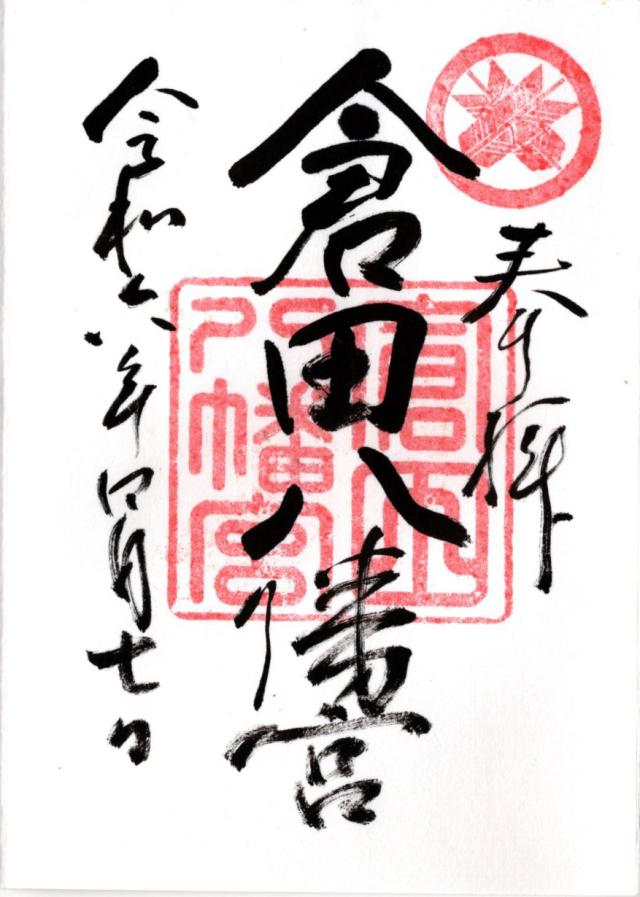 奉拝
倉田八幡宮
倉田八幡宮
令和六年四月七日